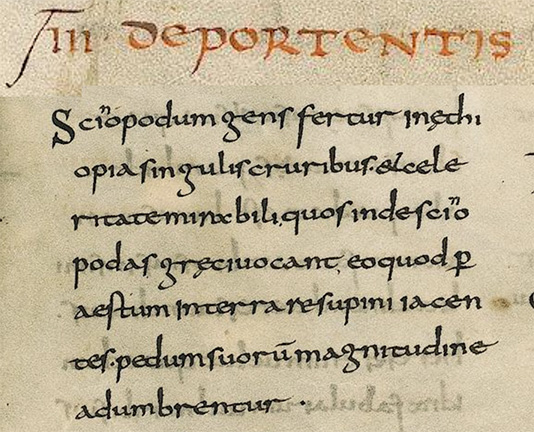 III DE PORTENTIS
Sciopodum gens fertur in ęthi
opia singulis cruribus. & cele
ritate mirabili, quos inde scio
podas gręci uocant, eo quod ꝑ
aestum in terra resupini iacen
tes. pedum suorū magnitudine
adumbrentur.